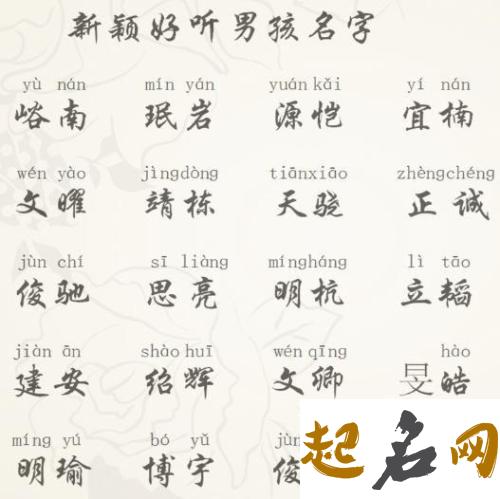 新颖好听男孩名字
yù nán mín yán yuán kǎi yí nán
峪南 珉岩 源恺 宜楠
wén yào jìngdòng tiānxiāo zhèngchéng
文曜 靖栋 天骁 正诚
jùn chí sī liàng mínghángg lì tāo
俊驰 思亮 明杭 立韬
jiàn ān shào huī wén qīng hào
建安 绍辉 文卿 旻皓
míng yú bó yǔ jùn
明瑜 博宇 俊
起名网